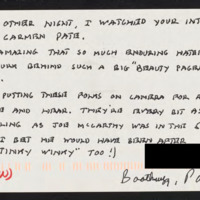 OTHER NIGHT, I WATCHED YOUR INT
CARMEN PATE.
AMAZING THAT SO MUCH ENDURING HATRE
LURK BEHIND SUCH A BIG "BEAUTY PAGEA
PUTTING THESE FOLKS ON CAMERA FOR A
SEE AND HEAR. THEY'RE EVERY BIT AS
LING AS JOE McCARTHY WAS IN THE 5
I BET HE WOULD HAVE BEEN AFTER
TINKY WINKY" TOO!)
Boothwyn, PA